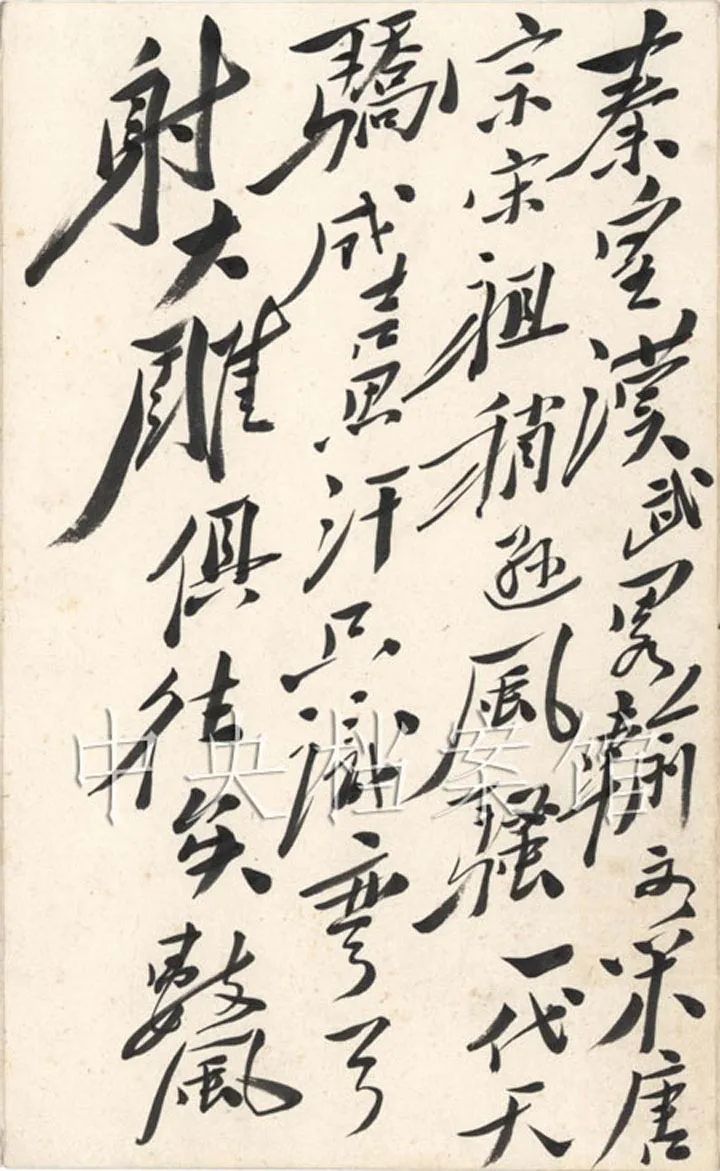 秦皇漢武畧輸文采唐
宗宋祖稍遜風騷一代天
驕成吉思汗只識彎弓
射大雕俱往矣數風
中央档案馆